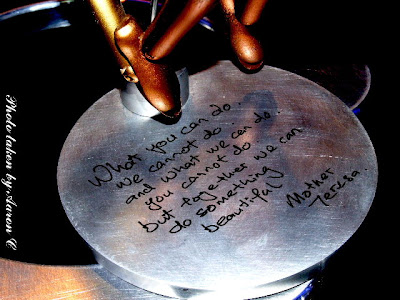 What you can do.
we cannot do.
and what we can do.
you cannot do
but together we can
do something
beautiful
Mother
Teresa.
Photo taken by Aaron C